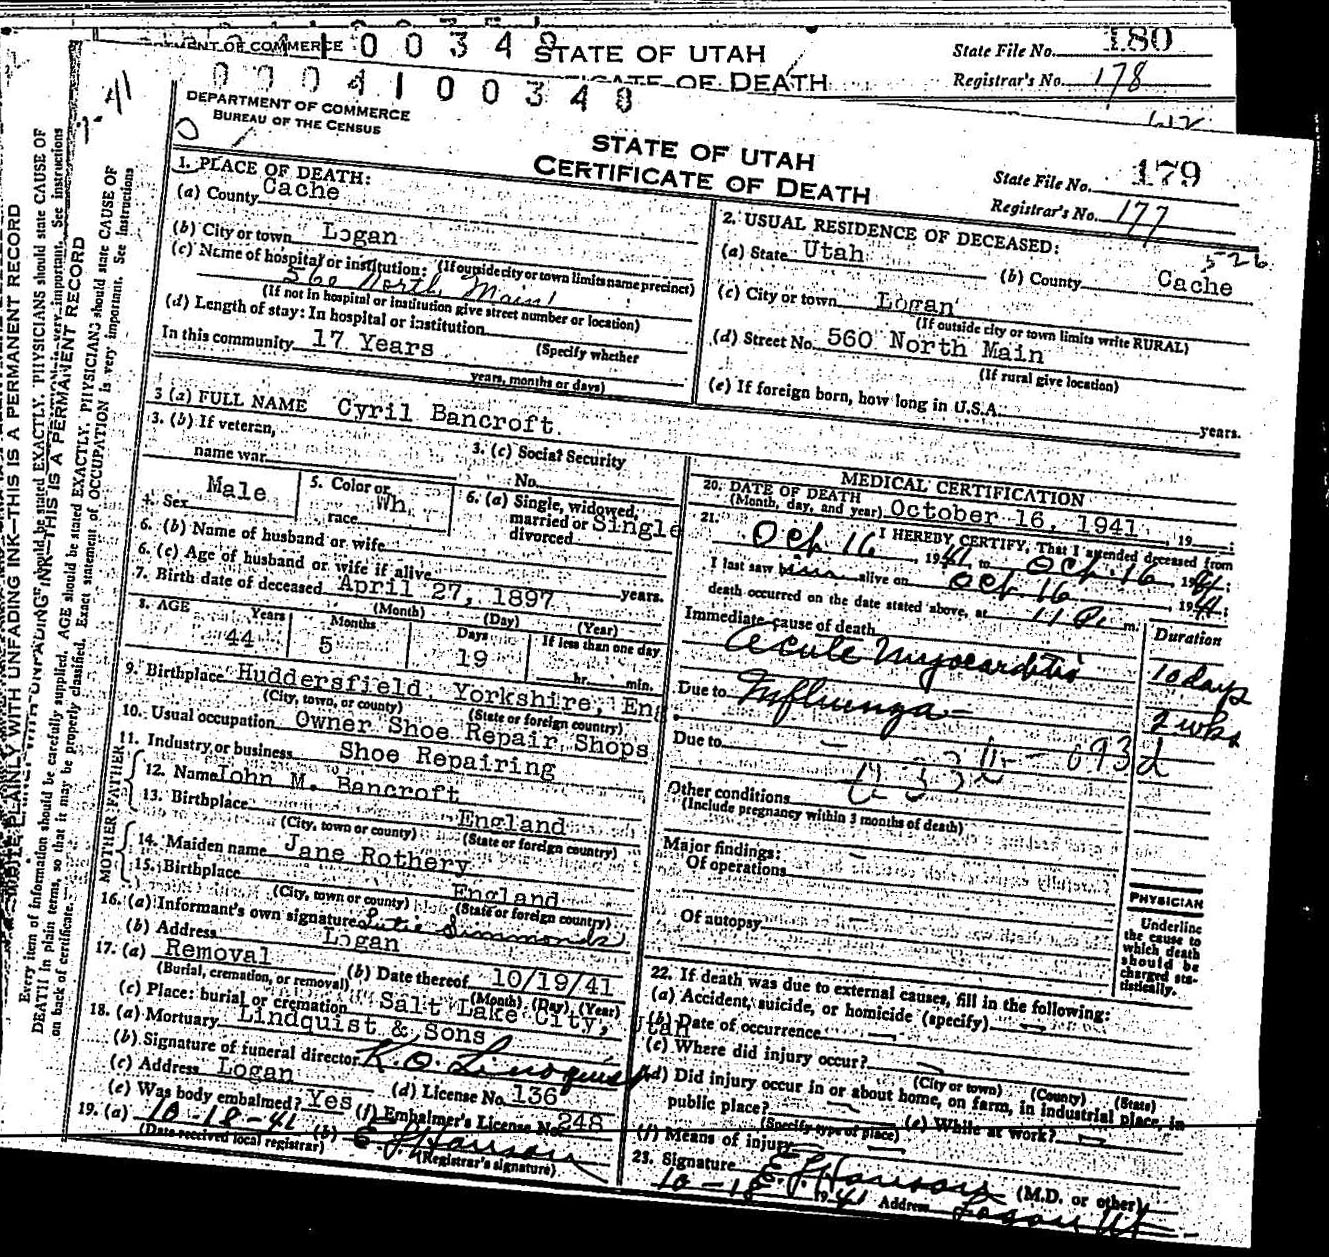 DEPARTMENT OF COMMERCE 00349 STATE OF UTAH
State File No. 180
CERTIFICATE OF DEATH
Registrar's No. 178
00041 00348
DEPARTMENT OF COMMERCE
BUREAU OF THE CENSUS
STATE OF UTAH
CERTIFICATE OF DEATH
State File No. 179
Registrar's No. 177
1. PLACE OF DEATH:
(a) County Cache
(b) City or town Logan
(c) Name of hospital or institution: (If outside city or town limits name precinct)
560 North Main
(If not in hospital or institution give street number or location)
(d) Length of stay: In hospital or institution
(Specify whether
In this community 17 Years
years, months or days)
2. USUAL RESIDENCE OF DECEASED:
526
(a) State Utah (b) County Cache
(c) City or town Logan
(If outside city or town limits write RURAL)
(d) Street No. 560 North Main
(If rural give location)
(e) If foreign born, how long in U.S.A. years.
3 (a) FULL NAME Cyril Bancroft.
3. (b) If veteran,
name war
3. (c) Social Security
No.
4. Sex Male
5. Color or race Wh.
6. (a) Single, widowed, married or divorced Single
6. (b) Name of husband or wife
6. (c) Age of husband or wife if alive years.
7. Birth date of deceased April 27, 1897
(Month) (Day) (Year)
8. AGE Years Months Days If less than one day
44 5 19 hr. min.
9. Birthplace Huddersfield, Yorkshire, Eng
(City, town, or county) (State or foreign country)
10. Usual occupation Owner Shoe Repair Shops
11. Industry or business Shoe Repairing
FATHER
12. Name John M. Bancroft
13. Birthplace England
(City, town or county) (State or foreign country)
MOTHER
14. Maiden name Jane Rothery
15. Birthplace England
(City, town or county) (State or foreign country)
16. (a) Informant's own signature Lutie Simmonds
(b) Address Logan
17. (a) Removal (b) Date thereof 10/19/41
(Burial, cremation, or removal) (Month) (Day) (Year)
(c) Place: burial or cremation Salt Lake City, Utah
18. (a) Mortuary Lindquist & Sons
(b) Signature of funeral director K. O. Lindquist
(c) Address Logan (d) License No. 136
(e) Was body embalmed? Yes (f) Embalmer's License No. 248
19. (a) 10-18-41 (b) E. J. Hanson
(Date received local registrar) (Registrar's signature)
MEDICAL CERTIFICATION
20. DATE OF DEATH
(Month, day, and year) October 16, 1941, 19
21. I HEREBY CERTIFY, That I attended deceased from
Oct 16 1941, to Oct. 16, 1941;
I last saw him alive on Oct 16, 1941;
death occurred on the date stated above, at 11 P. m.
Immediate cause of death Duration
Acute Myocarditis 10 days
Due to Influenza 2 wks
Due to
093d
Other conditions
(Include pregnancy within 3 months of death)
Major findings:
Of operations
Of autopsy
PHYSICIAN
Underline the cause to which death should be charged statistically.
22. If death was due to external causes, fill in the following:
(a) Accident, suicide, or homicide (specify)
(b) Date of occurrence
(c) Where did injury occur?
(City or town) (County) (State)
(d) Did injury occur in or about home, on farm, in industrial place, in
public place? (e) While at work?
(Specify type of place)
(f) Means of injury
23. Signature E. J. Hanson (M.D. or other)
10-18 1941 Address Logan Ut
WRITE PLAINLY WITH UNFADING INK—THIS IS A PERMANENT RECORD
Every item of information should be carefully supplied. AGE should be stated EXACTLY. PHYSICIANS should state CAUSE OF
DEATH in plain terms, so that it may be properly classified. Exact statement of OCCUPATION is very important. See instructions
on back of certificate.